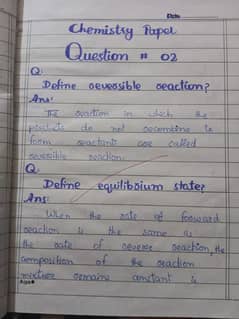 Date:
Chemistry Paper
Question # 02
Q:
Define reversible reaction?
Ans:
The reaction in which the
products do not recombine to
form reactants are called
reversible reaction.
Q:
Define equilibrium state?
Ans:
When the rate of forward
reaction is the same as
the rate of reverse reaction, the
composition of the reaction
mixture remains constant is